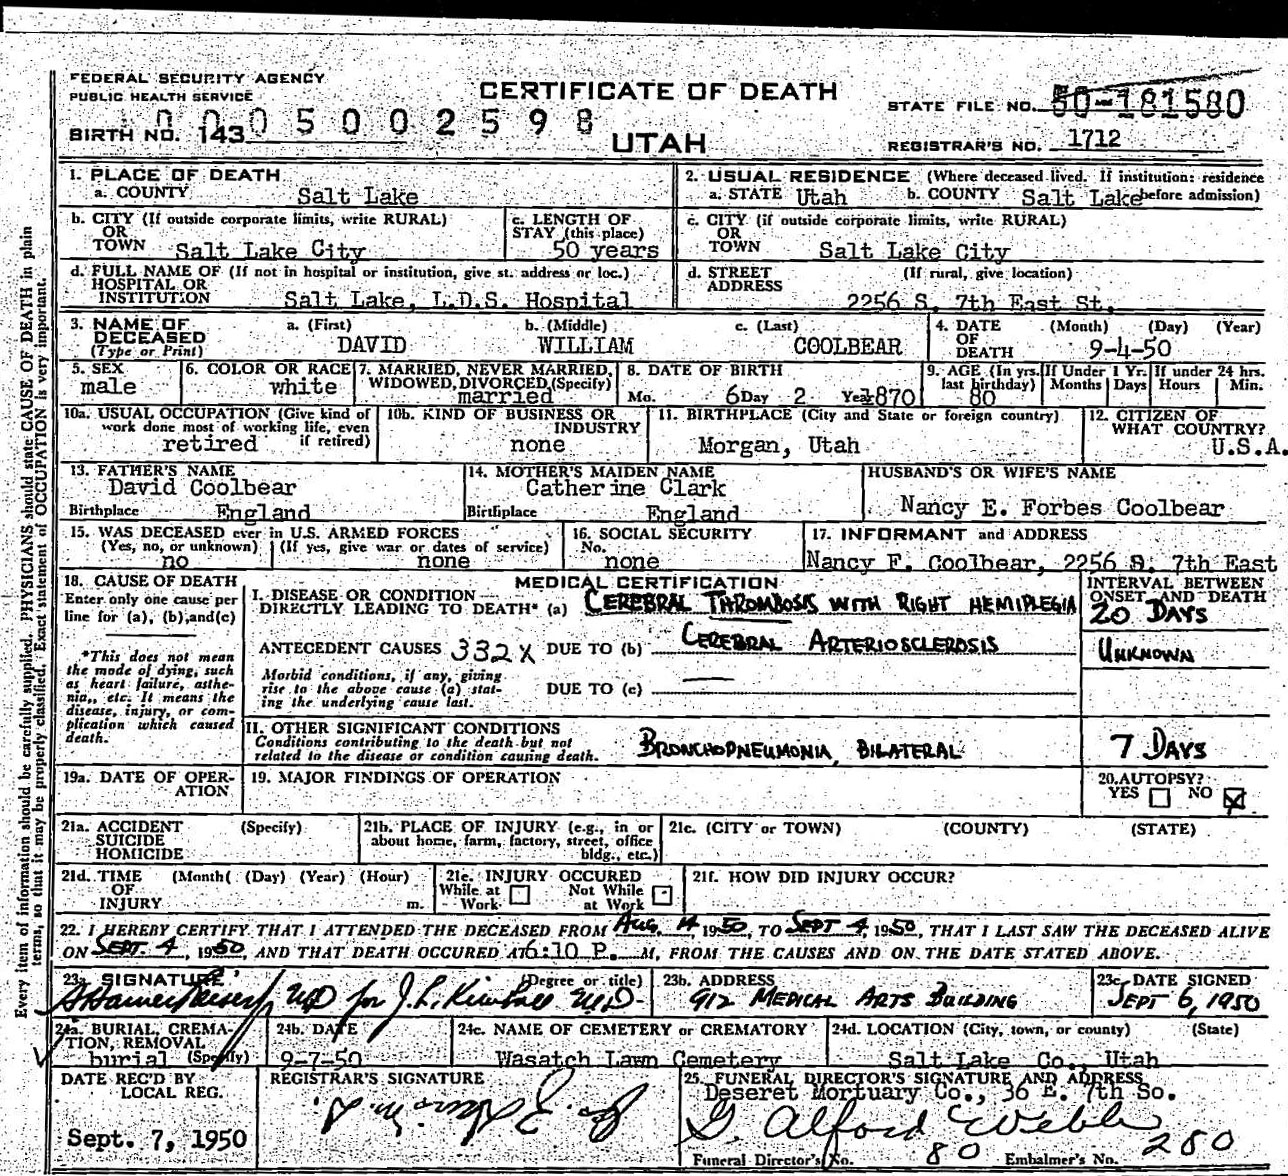 FEDERAL SECURITY AGENCY
PUBLIC HEALTH SERVICE
CERTIFICATE OF DEATH
UTAH
STATE FILE NO. 50-181580
0005002598
BIRTH NO. 143
REGISTRAR'S NO. 1712
1. PLACE OF DEATH
a. COUNTY Salt Lake
2. USUAL RESIDENCE (Where deceased lived. If institution: residence before admission)
a. STATE Utah b. COUNTY Salt Lake
b. CITY (If outside corporate limits, write RURAL)
OR
TOWN Salt Lake City
c. LENGTH OF
STAY (this place)
50 years
c. CITY (if outside corporate limits, write RURAL)
OR
TOWN Salt Lake City
d. FULL NAME OF (If not in hospital or institution, give st. address or loc.)
HOSPITAL OR
INSTITUTION Salt Lake, L.D.S. Hospital
d. STREET (If rural, give location)
ADDRESS
2256 S. 7th East St.
3. NAME OF
DECEASED
(Type or Print)
a. (First) b. (Middle) c. (Last)
DAVID WILLIAM COOLBEAR
4. DATE (Month) (Day) (Year)
OF
DEATH 9-4-50
5. SEX
male
6. COLOR OR RACE
white
7. MARRIED, NEVER MARRIED,
WIDOWED, DIVORCED (Specify)
married
8. DATE OF BIRTH
Mo. 6 Day 2 Year 1870
9. AGE (In yrs. last birthday)
80
If Under 1 Yr.
Months Days
If under 24 hrs.
Hours Min.
10a. USUAL OCCUPATION (Give kind of
work done most of working life, even
if retired)
retired
10b. KIND OF BUSINESS OR
INDUSTRY
none
11. BIRTHPLACE (City and State or foreign country)
Morgan, Utah
12. CITIZEN OF
WHAT COUNTRY?
U.S.A.
13. FATHER'S NAME
David Coolbear
Birthplace England
14. MOTHER'S MAIDEN NAME
Catherine Clark
Birthplace England
HUSBAND'S OR WIFE'S NAME
Nancy E. Forbes Coolbear
15. WAS DECEASED ever in U.S. ARMED FORCES
(Yes, no, or unknown) (If yes, give war or dates of service)
no none
16. SOCIAL SECURITY
No.
none
17. INFORMANT and ADDRESS
Nancy F. Coolbear, 2256 S. 7th East
18. CAUSE OF DEATH
Enter only one cause per
line for (a), (b), and (c)
*This does not mean
the mode of dying, such
as heart failure, asthe-
nia,, etc. It means the
disease, injury, or com-
plication which caused
death.
MEDICAL CERTIFICATION
I. DISEASE OR CONDITION
DIRECTLY LEADING TO DEATH* (a) CEREBRAL THROMBOSIS WITH RIGHT HEMIPLEGIA
ANTECEDENT CAUSES 332X DUE TO (b) CEREBRAL ARTERIOSCLEROSIS
Morbid conditions, if any, giving
rise to the above cause (a) stat-
ing the underlying cause last.
DUE TO (c)
II. OTHER SIGNIFICANT CONDITIONS
Conditions contributing to the death but not
related to the disease or condition causing death.
BRONCHOPNEUMONIA, BILATERAL
INTERVAL BETWEEN
ONSET AND DEATH
20 DAYS
UNKNOWN
7 DAYS
19a. DATE OF OPER-
ATION
19. MAJOR FINDINGS OF OPERATION
20. AUTOPSY?
YES NO X
21a. ACCIDENT (Specify)
SUICIDE
HOMICIDE
21b. PLACE OF INJURY (e.g., in or
about home, farm, factory, street, office
bldg., etc.)
21c. (CITY or TOWN) (COUNTY) (STATE)
21d. TIME (Month( (Day) (Year) (Hour)
OF
INJURY m.
21e. INJURY OCCURED
While at Not While
Work at Work
21f. HOW DID INJURY OCCUR?
22. I HEREBY CERTIFY THAT I ATTENDED THE DECEASED FROM AUG. 14, 1950, TO SEPT 4, 1950, THAT I LAST SAW THE DECEASED ALIVE
ON SEPT. 4, 1950, AND THAT DEATH OCCURED AT 6:10 P. M, FROM THE CAUSES AND ON THE DATE STATED ABOVE.
23a. SIGNATURE (Degree or title)
MD for J. L. Kimball M.D.
23b. ADDRESS
912 MEDICAL ARTS BUILDING
23c. DATE SIGNED
SEPT 6, 1950
24a. BURIAL, CREMA-
TION, REMOVAL
burial (Specify)
24b. DATE
9-7-50
24c. NAME OF CEMETERY or CREMATORY
Wasatch Lawn Cemetery
24d. LOCATION (City, town, or county) (State)
Salt Lake Co., Utah
DATE REC'D BY
LOCAL REG.
Sept. 7, 1950
REGISTRAR'S SIGNATURE
25. FUNERAL DIRECTOR'S SIGNATURE AND ADDRESS
Deseret Mortuary Co., 36 E. 7th So.
G. Alford Webb
Funeral Director's No. 80 Embalmer's No. 280
Every item of information should be carefully supplied. PHYSICIANS should state CAUSE OF DEATH in plain
terms, so that it may be properly classified. Exact statement of OCCUPATION is very important.